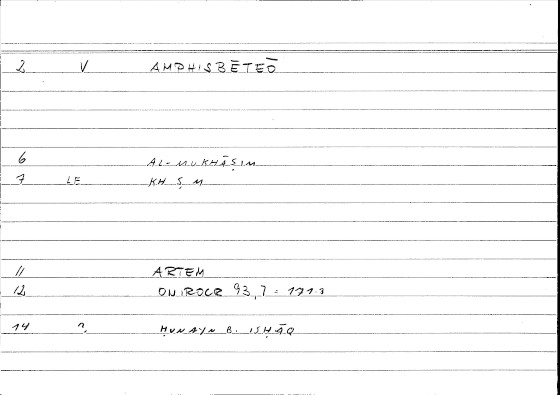 2 V AMPHISBĒTEŌ
6 AL-MUKHĀṢIM
7 LE KH Ṣ M
11 ARTEM
12 ONIROCR 93,7 = 171.3
14 ? ḤUNAYN B. ISḤĀQ